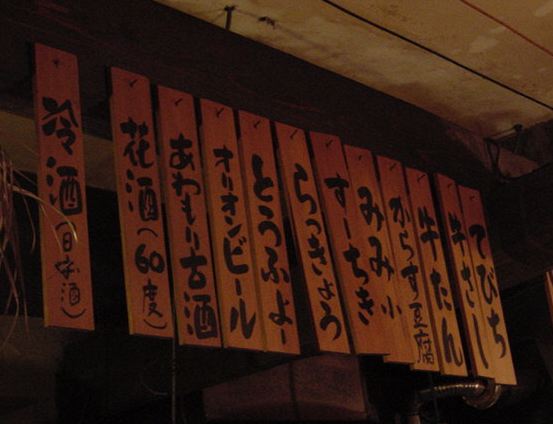 てびち
牛さし
牛たん
からす豆腐
みみ小
すーちき
らっきょう
とうふよー
オリオンビール
あわもり古酒
花酒(60度)
冷酒(日本酒)